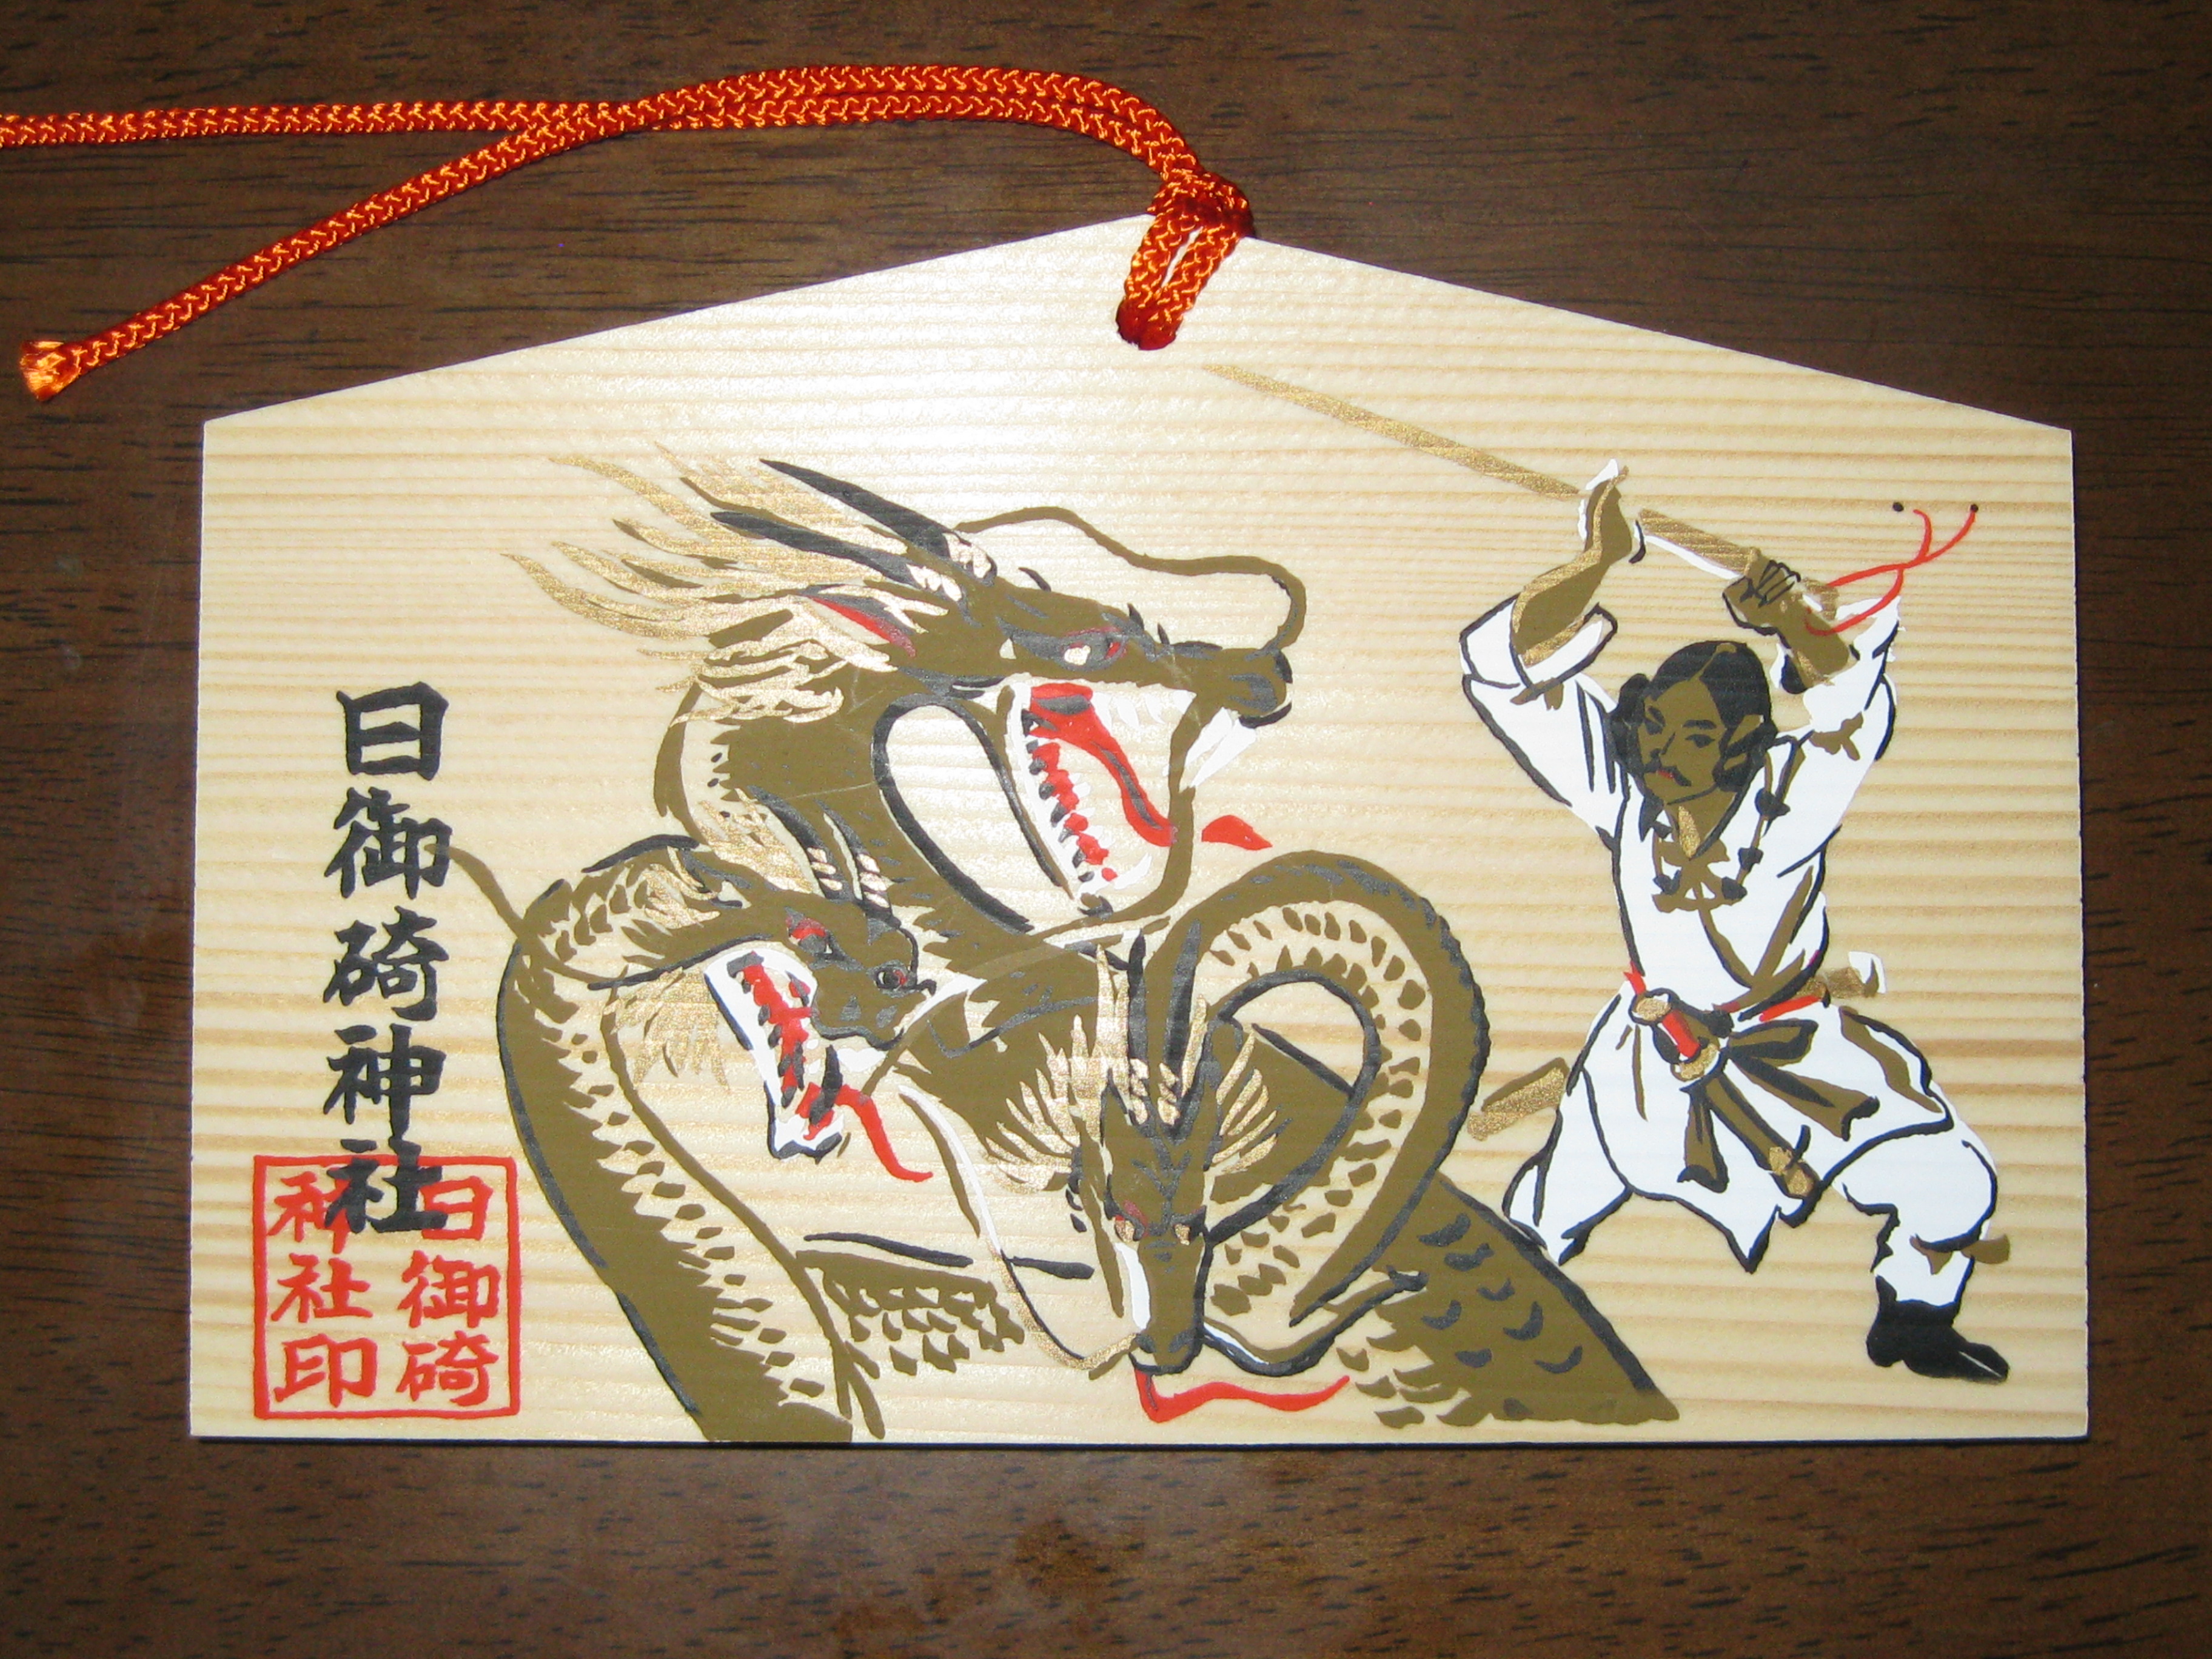 日御碕神社
日御碕
神社印